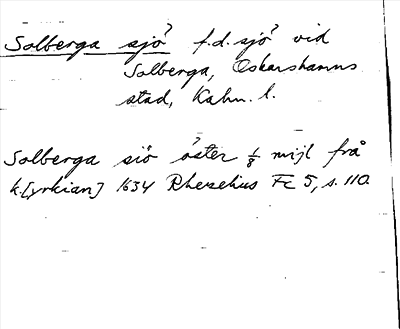 Solberga sjö? f.d. sjö? vid
Solberga, Oskarshamns
stad, Kalm. l.
Solberga siö öster 1/8 mijl frå
k.[yrkian] 1634 Rhezelius Fc 5, s. 110.